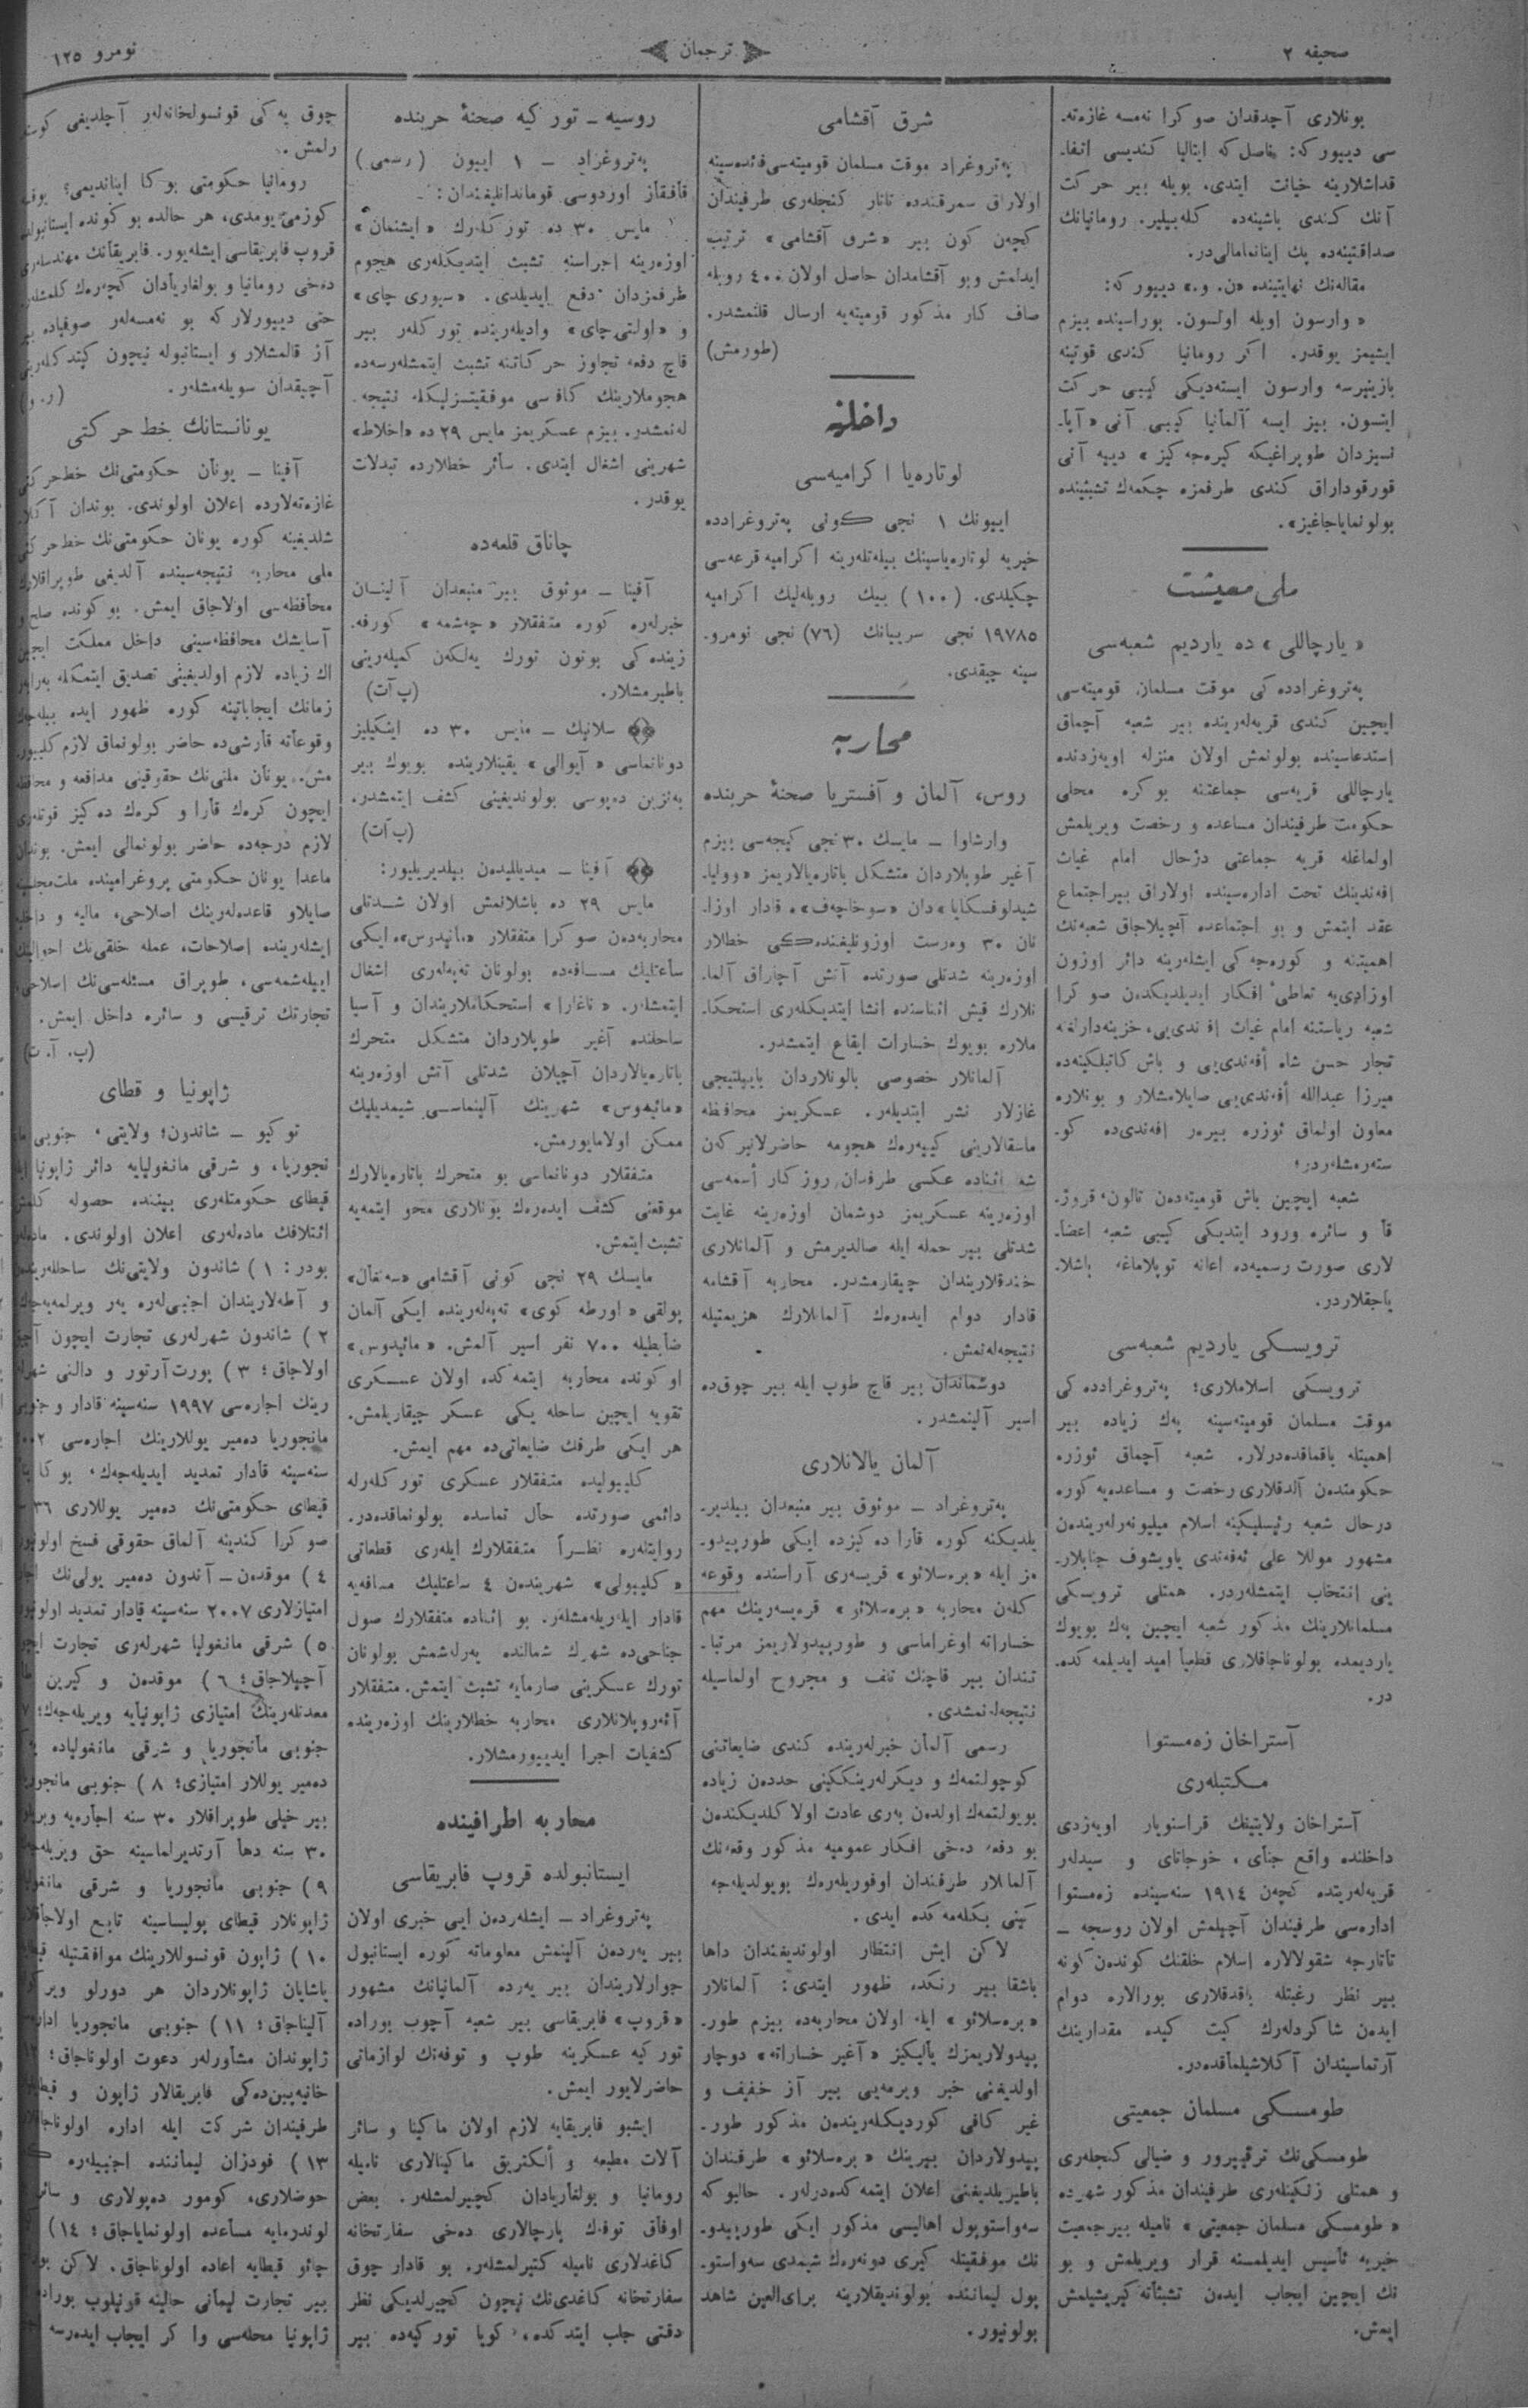 صحیفه ٢
ترجمان
نومرو ١٢٥
بونلاری آچدقدان صوکرا نەمسه غازەتە‌ـ
سی دییورکه: ناصل‌که ایتالیا کندیسی اتفا‌ـ
قداشلارینه خیانت ایتدی، بویله بیر حرکت
آنك کندی باشینه‌ده کله‌بیلیر. رومانیانك
صداقتینه‌ده پك اینانمامالی‌در.
مقاله‌نك نهایتینده «ن. و.» دییورکه:
« وارسون اویله اولسون. بوراسینده بیزم
ایشیمز یوقدر. اکر رومانیا کندی قوتینه
بازینیرسه وارسون ایسته‌دیکی کیبی حرکت
ایتسون. بیز ایسه آلمانیا کیبی آنی «آپا‌ـ
نسیزدان طوپراغیکه کیره‌جه‌کیز » دییه آنی
قورقوداراق کندی طرفمزه چکمه‌ك تشبثینده
بولونمایاجاغیز».
ملی معیشت
« یارچاللی» ده یاردیم شعبه‌سی
په‌تروغرادده‌کی موقت مسلمان قومیته‌سی
ایچین کندی قریه‌له‌رینده بیر شعبه آچماق
استدعاسینده بولونمش اولان منزله اویه‌زدنده
یارچاللی قریه‌سی جماعتنه بوکره محلی
حکومت طرفیندان مساعده و رخصت ویریلمش
اولماغله قریه جماعتی درحال امام غیاث
افه‌ندینك تحت اداره‌سینده اولاراق بیراجتماع
عقد ایتمش و بو اجتماعده آچیلاجاق شعبه‌نك
اهمیتنه و کوره‌جه‌کی ایشله‌رینه دائر اوزون
اوزادی‌یه تعاطئ افکار ایدیلدیکدن صوکرا
شعبه ریاستنه امام غیاث افه‌ندی‌یی، خزینه‌دارلغه
تجار حسن شاه أفه‌ندی‌یی و باش کاتبلکینه‌ده
میرزا عبدالله أفه‌ندی‌یی صایلامشلار و بونلاره
معاون اولماق ئوزره بیرەر افه‌ندی‌ده کو‌ـ
سته‌رمشله‌ردر؛
شعبه ایچین باش قومیته‌دن تالون، قروژ‌ـ
قا و سائره ورود ایتدیکی کیبی شعبه اعضا‌ـ
لاری صورت رسمیه‌ده اعانه توپلاماغه باشلا‌ـ
یاجقلاردر.
ترویسکی یاردیم شعبه‌سی
ترویسکی اسلاملاری؛ په‌تروغرادده‌کی
موقت مسلمان قومیته‌سینه پەك زیاده بیر
اهمیتله باقماقده‌درلار. شعبه آچماق ئوزره
حکومتدن آلدقلاری رخصت و مساعده‌یه کوره
درحال شعبه رئیسلیکینه اسلام میلیونه‌رله‌ریندن
مشهور موللا علی ئه‌فه‌ندی یاویشوف جنابلار‌ـ
ینی انتخاب ایتمشله‌ردر. همتلی ترویسکی
مسلمانلارینك مذکور شعبه ایچین پەك بویوك
یاردیمده بولوناجاقلاری قطعیاً امید ایدیلمه‌کده‌ـ
در.
آستراخان زه‌مستوا
مکتبله‌ری
آستراخان ولایتینك قراسنویار اویه‌زدی
داخلنده واقع جنای، خوجاتای و سیدلەر
قریه‌له‌رینده کچەن ١٩١٤ سنه‌سینده زه‌مستوا
اداره‌سی طرفیندان آچیلمش اولان روسجه ـ
تاتارجه شقولالاره اسلام خلقنك کوندەن کونه
بیر نظر رغبتله باقدقلاری بورالاره دوام
ایدەن شاکردلەرك کیت کیده مقدارینك
آرتماسیندان آکلاشیلمأقده‌در.
طومسکی مسلمان جمعیتی
طومسکی‌نك ترقیپرور و ضیالی کنجله‌ری
و همتلی زنکینله‌ری طرفیندان مذکور شهرده
« طومسکی مسلمان جمعیتی » نامیله بیرجمعیت
خیریه تأسیس ایدیلمسنه قرار ویریلمش و بو
نك ایچین ایجاب ایدەن تشبثأته کیریشیلمش
ایمش.
شرق آقشامی
په‌تروغراد موقت مسلمان قومیته‌سی فائده‌سینه
اولاراق سمرقندده تاتار کنجله‌ری طرفیندان
کچەن کون بیر «شرق آقشامی» ترتیب
ایدلمش و بو آقشامدان حاصل اولان ٤٠٠ روبله
صاف کار مذکور قومیته‌یه ارسال قلنمشدر.
(طورمش)
داخلیه
لوتاره‌یا اکرامیه‌سی
ایپونك ١ نجی کونی په‌تروغرادده
خیریه لوتاره‌یاسینك بیله‌تله‌رینه اکرامیه قرعه‌سی
چکیلدی. (١٠٠) بیك روبله‌لیك اکرامیه
١٩٧٨٥ نجی سرییانك (٧٦) نجی نومرو‌ـ
سینه چیقدی.
محاربه
روس، آلمان و آفستریا صحنهٔ حربنده
وارشاوا ـ مایسك ٣٠ نجی کیجه‌سی بیزم
آغیر طوپلاردان متشکل باتاره‌یالاریمز «وولیا‌ـ
شیدلوفسکایا» دان «سوخاچه‌ف»ه قادار اوزا‌ـ
نان ٣٠ وەرست اوزونلیغنده‌کی خطالار
اوزەرینه شدتلی صورتده آتش آچاراق آلما‌ـ
نلارك قیش اثناسنده انشا ایتدیکله‌ری استحکا‌ـ
ملاره بویوك خسارات ایقاع ایتمشدر.
آلمانلار خصوصی بالونلاردان باییلتیجی
غازلار نشر ایتدیلەر. عسکریمز محافظه
ماسقالارینی کییەرەك هجومه حاضرلانیرکەن
شه اثناده عکسی طرفدان روزکار أسمه‌سی
اوزەرینه عسکریمز دوشمان اوزەرینه غایت
شدتلی بیر حمله ایله صالدیرمش و آلمانلاری
خندقلاریندان چیقارمشدر. محاربه آقشامه
قادار دوام ایدەرەك آلمانلارك هزیمتیله
نتیجه‌لەنمش.
دوشماندان بیر قاچ طوپ ایله بیر چوق‌ده
اسیر آلینمشدر.
آلمان یالانلاری
په‌تروغراد ـ موثوق بیر منبعدان بیلدیر‌ـ
یلدیکنه کوره قأرا دەکیزده ایکی طورپیدو‌ـ
مز ایله «بره‌سلاؤ» قریسه‌ری آراسنده وقوعه
کلەن محاربه «بره‌سلاؤ» قره‌یسه‌رینك مهم
خساراته اوغراماسی و طورپیدولاریمز مرتبا‌ـ
تندان بیر قاچنك تلف و مجروح اولماسیله
نتیجه‌لەنمشدی.
رسمی آلمان خبرله‌رینده کندی ضایعاتنی
کوچولتمەك و دیکرله‌رینککینی حددەن زیاده
بویولتمەك اولدەن بەری عادت اولاکلدیکندەن
بو دفعه دخی افکار عمومیه مذکور وقعه‌نك
آلمانلار طرفندان اوقوریله‌رەك بویولدیله‌جه‌ـ
کینی بکله‌مه‌کده ایدی.
لاکن ایش انتظار اولوندیغندان داها
باشقا بیر رنکده ظهور ایتدی: آلمانلار
«بره‌سلائو » ایله اولان محاربه‌ده بیزم طور‌ـ
پیدولاریمزك یالیکیز «آغیر خساراته» دوچار
اولدیغنی خبر ویرمه‌یی بیر آز خفیف و
غیر کافی کوردیکله‌ریندەن مذکور طور‌ـ
پیدولاردان بیرینك « بره‌سلائو » طرفندان
باطیریلدیغنی اعلان ایتمه‌کده‌درلەر. حالبوکه
سه‌واستوپول اهالیسی مذکور ایکی طورپیدو‌ـ
نك موفقیتله کیری دونەرەك شیمدی سه‌واستو‌ـ
پول لیمانند‌ه بولوندیقلارینه برای‌العین شاهد
بولونیور.
روسیه ـ تورکیه صحنهٔ حربنده
په‌تروغراد ـ ١ اییون (رسمی)
قافقاز اوردوسی قوماندانلیغندان: ـ
مایس ٣٠ ده تورکلەرك «ایشنمان»
اوزەرینه اجراسنه تشبث ایتدیکله‌ری هجوم
طرفمزدان دفع ایدیلدی. «سیوری چای»
و «اولتی‌چای» وادیله‌رینده تورکلەر بیر
قاچ دفعه تجاوز حرکاتنه تشبث ایتمشله‌رسه‌ده
هجوملارینك کافه‌سی موفقیتسزلیکله نتیجه‌ـ
لەنمشدر. بیزم عسکریمز مایس ٢٩ ده «اخلاط»
شهرینی اشغال ایتدی. سأئر خطلارده تبدلات
یوقدر.
چاناق قلعه‌ده
آفینا ـ موثوق بیر منبعدان آلینان
خبرلەره کوره متفقلار «چه‌شمه» کورفه‌ـ
زینده‌کی بوتون تورك یەلکەن کمیله‌رینی
باطیرمشلار. (پ آت)
سلانیك ـ مایس ٣٠ ده اینکیلیز
دونانماسی «آیوالی» یقینلارینده بویوك بیر
به‌نزین ده‌پوسی بولوندیغینی کشف ایتمشدر.
(پ آت)
آفینا ـ میدیللیدەن بیلدیریلیور:
مایس ٢٩ ده باشلانمش اولان شدتلی
محاربه‌دەن صوکرا متفقلار «مائیدوس»ه ایکی
سأعتلیك مسافه‌ده بولونان تەپەلەری اشغال
ایتمشلەر. «ناغارا» استحکاملاریندان و آسیا
ساحلنده آغیر طوپلاردان متشکل متحرك
باتاره‌یالاردان آچیلان شدتلی آتش اوزەرینه
«مائیدوس» شهرینك آلینماسی شیمدیلیك
ممکن اولامایورمش.
متفقلار دونانماسی بو متحرك باتاره‌یالارك
موقعنی کشف ایدەرەك بونلاری محو ایتمه‌یه
تشبث ایتمش.
مایسك ٢٩ نجی کونی آقشامی «سه‌نغال»
پولقی «اورطه کوی» تەپەلەرینده ایکی آلمان
ضابطیله ٧٠٠ نفر اسیر آلمش. «مائیدوس»
اوکونده محاربه ایتمه‌کده اولان عسکری
تقویه ایچین ساحله یکی عسکر چیقاریلمش.
هر ایکی طرفك ضایعاتی‌ده مهم ایمش.
کلیبولیده متفقلار عسکری تورکلەرله
دائمی صورتده حال تماسده بولونماقده‌در.
روایتلەره نظرأ متفقلارك ایلەری قطعاتی
«کلیبولی» شهریندەن ٤ ساعتلیك مسافه‌یه
قادار ایلەریلەمشلەر. بو اثناده متفقلارك صول
جناحی‌ده شهرك شمالنده یەرلەشمش بولونان
تورك عسکرینی صارمایه تشبث ایتمش. متفقلار
آئەروپلانلاری محاربه خطلارینك اوزەرینده
کشفیات اجرا ایدییورمشلار.
محاربه اطرافینده
ایستانبولده قروپ فابریقاسی
په‌تروغراد ـ ایشلەردەن ایی خبری اولان
بیر یەردەن آلینمش معلوماته کوره ایستانبول
جوارلاریندان بیر یەرده آلمانیانك مشهور
«قروپ» فابریقاسی بیر شعبه آچوب بوراده
تورکیه عسکرینه طوپ و توفەنك لوازماتی
حاضرلایور ایمش.
ایشبو فابریقایه لازم اولان ماکینا و سائر
آلات مطبعه و ألکتریق ماکینالاری نامیله
رومانیا و بولغاریادان کچیرلمشلەر. بعض
اوفأق توفەك پارچالاری دەخی سفارتخانه
کاغدلاری نامیله کتیرلمشلەر. بو قادار چوق
سفارتخانه کاغدی‌نك نیچون کچیرلدیکی نظر
دقتی جلب ایتدکده، کویا تورکیه‌ده بیر
چوق یەکی قونسولخانەلەر آچلدیغی کوسته
رلمش.
رومانیا حکومتی بوکا ایناندیمی؟ یوقسه
کوزمی یومدی، هر حالده بو کونده ایستانبولده
قروپ فابریقاسی ایشلەیور. فابریقأنك مهندسلەری
دەخی رومانیا و بولغاریأدان کچەرەك کلمشلەر.
حتی دییورلارکه بو نەمسەلەر صوفیاده بیر
آز قالمشلار و ایستانبوله نیچون کیتدکلەرینی
آچیقدان سویلەمشلەر. (ر. و)
یونانستانك خط حرکتی
آفینا ـ یونأن حکومتی‌نك خط‌حرکتی
غازەتەلارده اعلان اولوندی. بوندان آکلا
شلدیغینه کوره یونان حکومتی‌نك خط‌حرکتی
ملی محاربه نتیجه‌سینده آلدیغی طوپراقلارك
محأفظه‌سی اولاجاق ایمش. بو کونده صلح و
آسایشك محافظه‌سینی داخل مملکت ایچین
اك زیاده لازم اولدیغینی تصدیق ایتمکله بەرابەر
زمانك ایجاباتینه کوره ظهور ایده بیلەجك
وقوعأته قأرشی‌ده حاضر بولونماق لازم کلییور
مش. یونأن ملتی‌نك حقوقینی مدافعه و محافظه
ایچون کرەك قأرا و کرەك دەکیز قوتلەری
لازم درجه‌ده حاضر بولونمالی ایمش. بوندان
ماعدا یونان حکومتی پروغرامینده ملت‌مجلسینه
صایلاو قاعدەلەرینك اصلاحی، مالیه و داخلیه
ایشلەرینده اصلاحات، عمله خلقی‌نك احوالینك
اییلەشمەسی، طوپراق مسئله‌سی‌نك اصلاحی،
تجارتك ترقیسی و سائره داخل ایمش.
(پ. آ. ت)
ژاپونیا و قطای
توکیو ـ شاندون؛ ولایتی، جنوبی ما
نجوریا، و شرقی مانغولیایه دائر ژاپونیا ایله
قیطای حکومتلەری بیننده حصوله کلمش
ائتلافك مادەلەری اعلان اولوندی. مادەلەر
بودر: ١) شاندون ولایتی‌نك ساحللەریندن
و آطەلاریندان اجنبی‌لەره یەر ویرلمەیەجك
٢) شاندون شهرلەری تجارت ایچون آچیق
اولاجاق؛ ٣) پورت‌آرتور و دالنی شهرلە
رینك اجارەسی ١٩٩٧ سنه‌سینه قادار و جنوبی
مانجوریا دەمیر یوللارینك اجارەسی ٢٠٠٢
سنه‌سینه قأدار تمدید ایدیلەجەك، بوکا بناء
قیطای حکومتی‌نك دەمیر یوللاری ٣٦
صوکرا کندینه آلماق حقوقی فسخ اولونور
٤) موقدەن ـ آندون دەمیر یولی‌نك اجا
امتیازلاری ٢٠٠٧ سنه‌سینه قادار تمدید اولونور
٥) شرقی مانغولیا شهرلەری تجارت ایچون
آچیلاجاق؛ ٦) موقدەن و کیرین
معدنلەرینك امتیازی ژاپونیأیه ویریلەجەك؛ ٧
جنوبی مأنجوریا و شرقی مانغولیاده
دەمیر یوللار امتیازی؛ ٨) جنوبی مانجوریا
بیر خیلی طوپراقلار ٣٠ سنه اجأرەیه ویریلوب
٣٠ سنه دهأ آرتدیرلماسینه حق ویریلەجك
٩) جنوبی مأنجوریا و شرقی مانغولیا
ژاپونلار قیطای پولیساسینه تابع اولاجاقلار
١٠) ژاپون قونسوللارینك موافقتیله
یاشایان ژاپونلاردان هر دورلو ویرکو
آلیناجاق؛ ١١) جنوبی مانجوریا ادارە
ژاپوندان مشأورلەر دعوت اولوناجاق؛ ١٢
خانیەپین‌دەکی فابریقالار ژاپون و قیطای
طرفیندان شرکت ایله اداره اولوناجاق
١٣) فودزان لیمانندە اجنبیلەره
حوضلاری، کومور دەپولاری و سائر
لوندرمایه مسأعده اولونمایاجاق؛ ١٤)
چاؤ قیطایه اعاده اولوناجاق. لاکن بورا
بیر تجارت لیمأنی حالینه قونیلوب بوراده
ژاپونیا محله‌سی وا کر ایجاب ایدەرسه